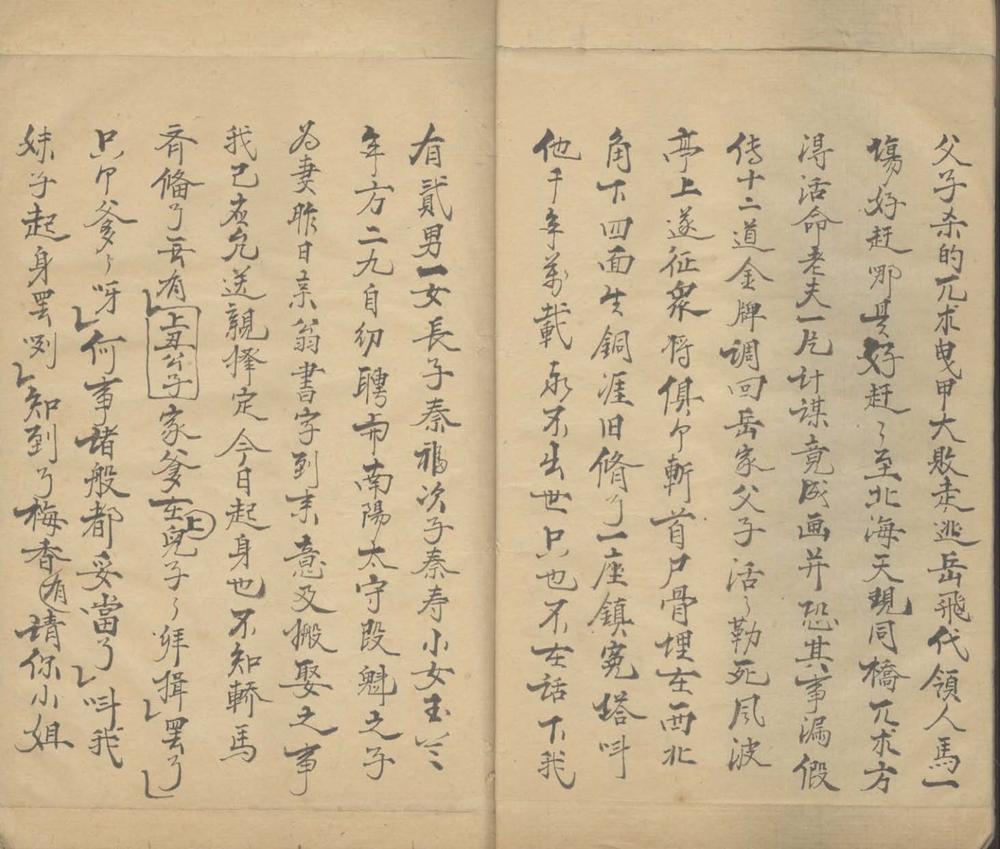 父子杀的兀求曳甲大败走逃岳飛代領人馬一
塲好赶那其好赶〻至北海天現同橋兀求方
淂活命老夫一片计谋竟成画并恐其事漏假
傳十二道金牌調回岳家父子活〻勒死风波
亭上遂征衆将俱卩斬首尸骨埋在西北
角下四面生銅涯旧脩了一座鎮寃塔叫
他千年萬載永不出世只也不在話下我
有貳男一女長子秦福次子秦寿小女玉兰
年方二九自纫聘赤南陽太守段魁之子
为妻昨日亲翁書字到来意及搬娶之事
我已应允送親擇定今日起身也不知轎馬
齐俻了無有上丑公子家爹在上兒子〻拜揖罢了
只卩爹〻呀何事诸般都妥當了叫我
妹子起身罢咧知到了梅香有请你小姐